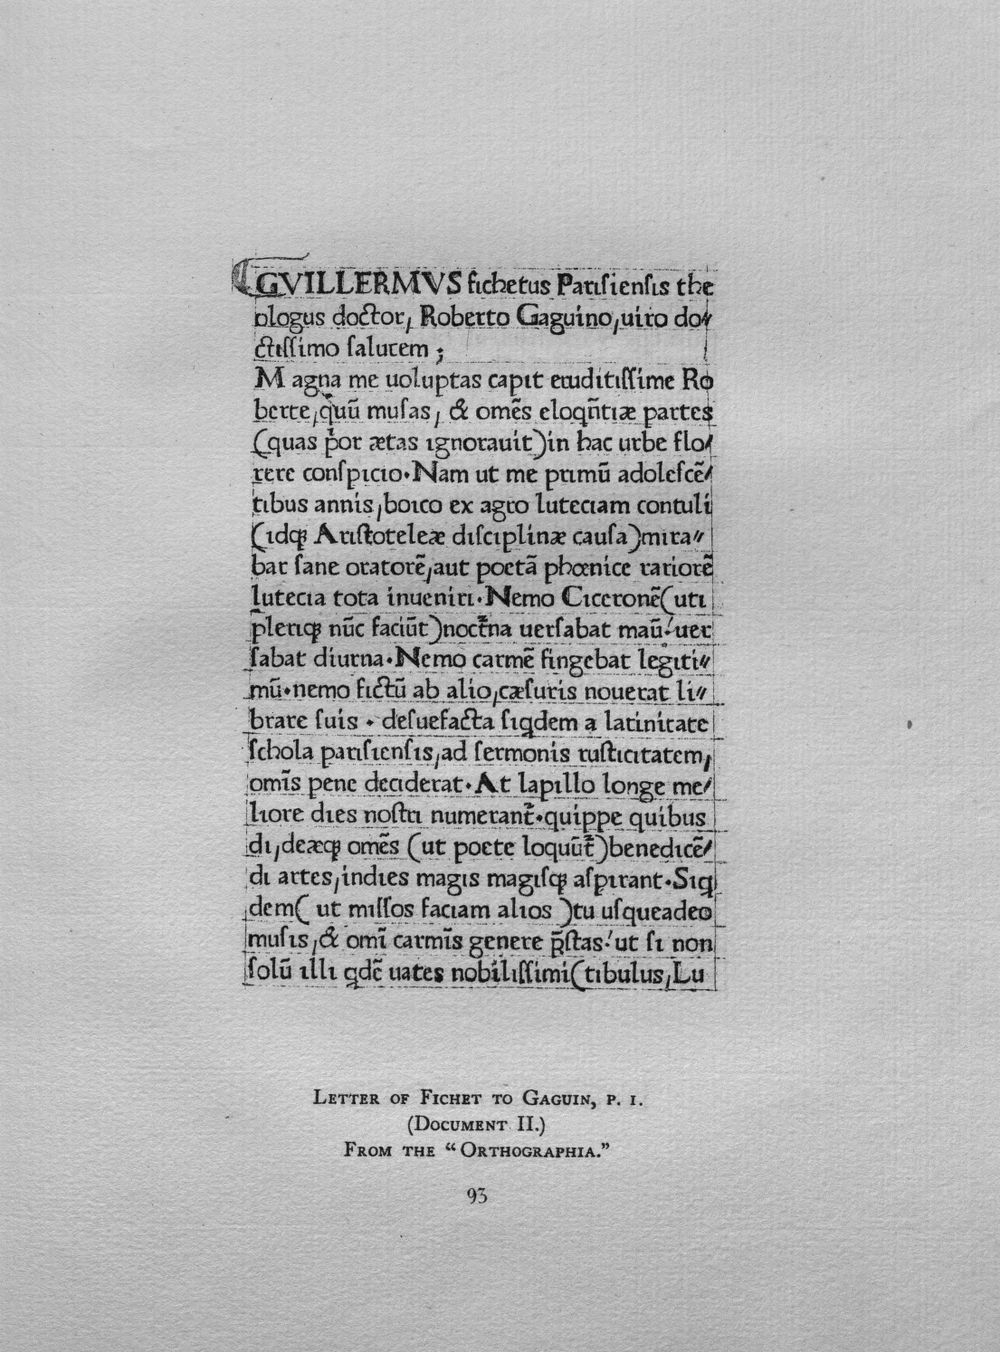 GVILLERMVS fichetus Parisiensis the
ologus doctor, Roberto Gaguino, uiro do⸗
ctissimo salutem ;
M agna me uoluptas capit eruditissime Ro
berte, quū musas, & omēs eloqn̄tiæ partes
(quas p̄or ætas ignorauit) in hac urbe flo⸗
rere conspicio. Nam ut me primū adolescē⸗
tibus annis, boico ex agro luteciam contuli
(idqꝫ Aristoteleæ disciplinæ causa) mira⸗
bar sane oratorē, aut poetā phœnice rariorē
lutecia tota inueniri. Nemo Ciceronē (uti
pleriqꝫ nūc faciūt) noct̄na uersabat maū: uer
sabat diurna. Nemo carmē fingebat legiti⸗
mū. nemo fictū ab alio, cæsuris nouerat li⸗
brare suis. desuefacta siqdem a latinitate
schola parisiensis, ad sermonis rusticitatem,
omīs pene deciderat. At lapillo longe me⸗
liore dies nostri numerant̄. quippe quibus
di, deæqꝫ omēs (ut poete loquūt̄) benedicē⸗
di artes, indies magis magisqꝫ aspirant. Siq
dem (ut missos faciam alios) tu usqueadeo
musis, & omī carmīs genere p̄stas: ut si non
solū illi qdē uates nobilissimi (tibulus, Lu
Letter of Fichet to Gaguin, p. 1.
(Document II.)
From the “Orthographia.”
93